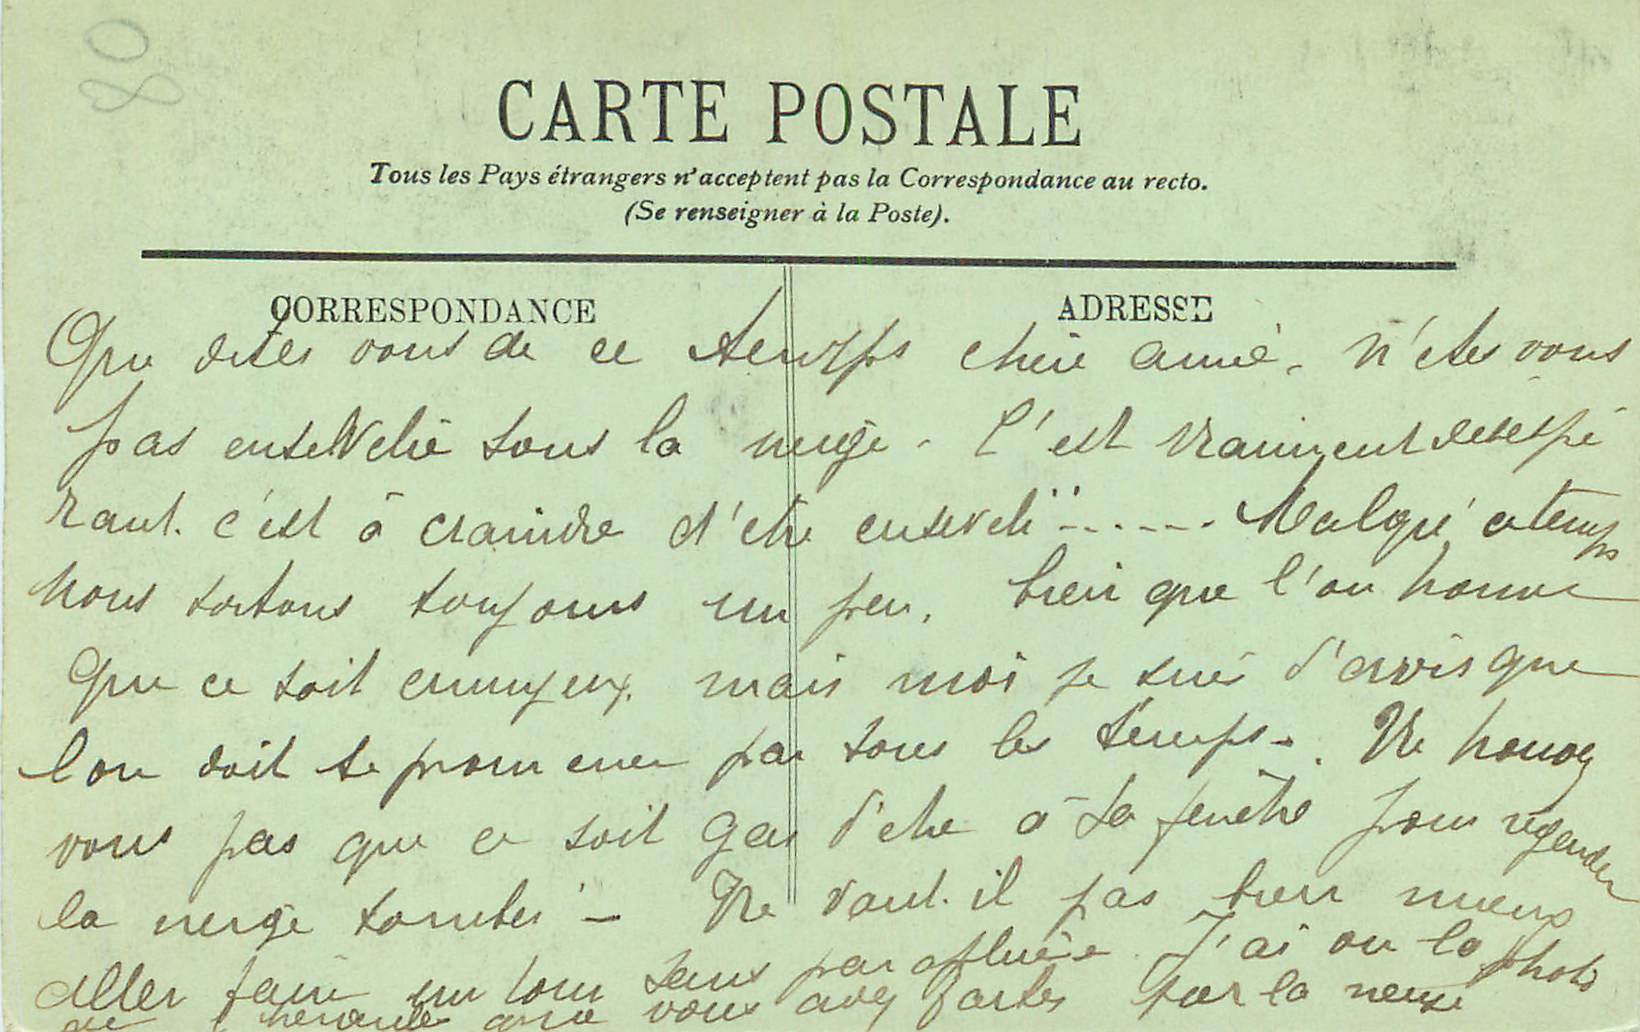 80
CARTE POSTALE
Tous les Pays étrangers n'acceptent pas la Correspondance au recto.
(Se renseigner à la Poste).
CORRESPONDANCE
ADRESSE
Que dites vous de ce temps chère amie, n'etes vous
pas ensevelie sous la neige. C'est vraiment desespé
rant. c'est à craindre d'etre enseveli..... Malgré ce temps
nous sortons toujours un peu, bien que l'on trouve
que ce soit ennuyeux, mais moi je suis d'avis que
l'on doit se promener par tous les temps. Ne trouvez
vous pas que ce soit gai d'etre à la fenêtre pour regarder
la neige tomber - Ne vaut-il pas bien mieux
aller faire un tour sans J'ai vu la photo
que vous avez faites par la neige